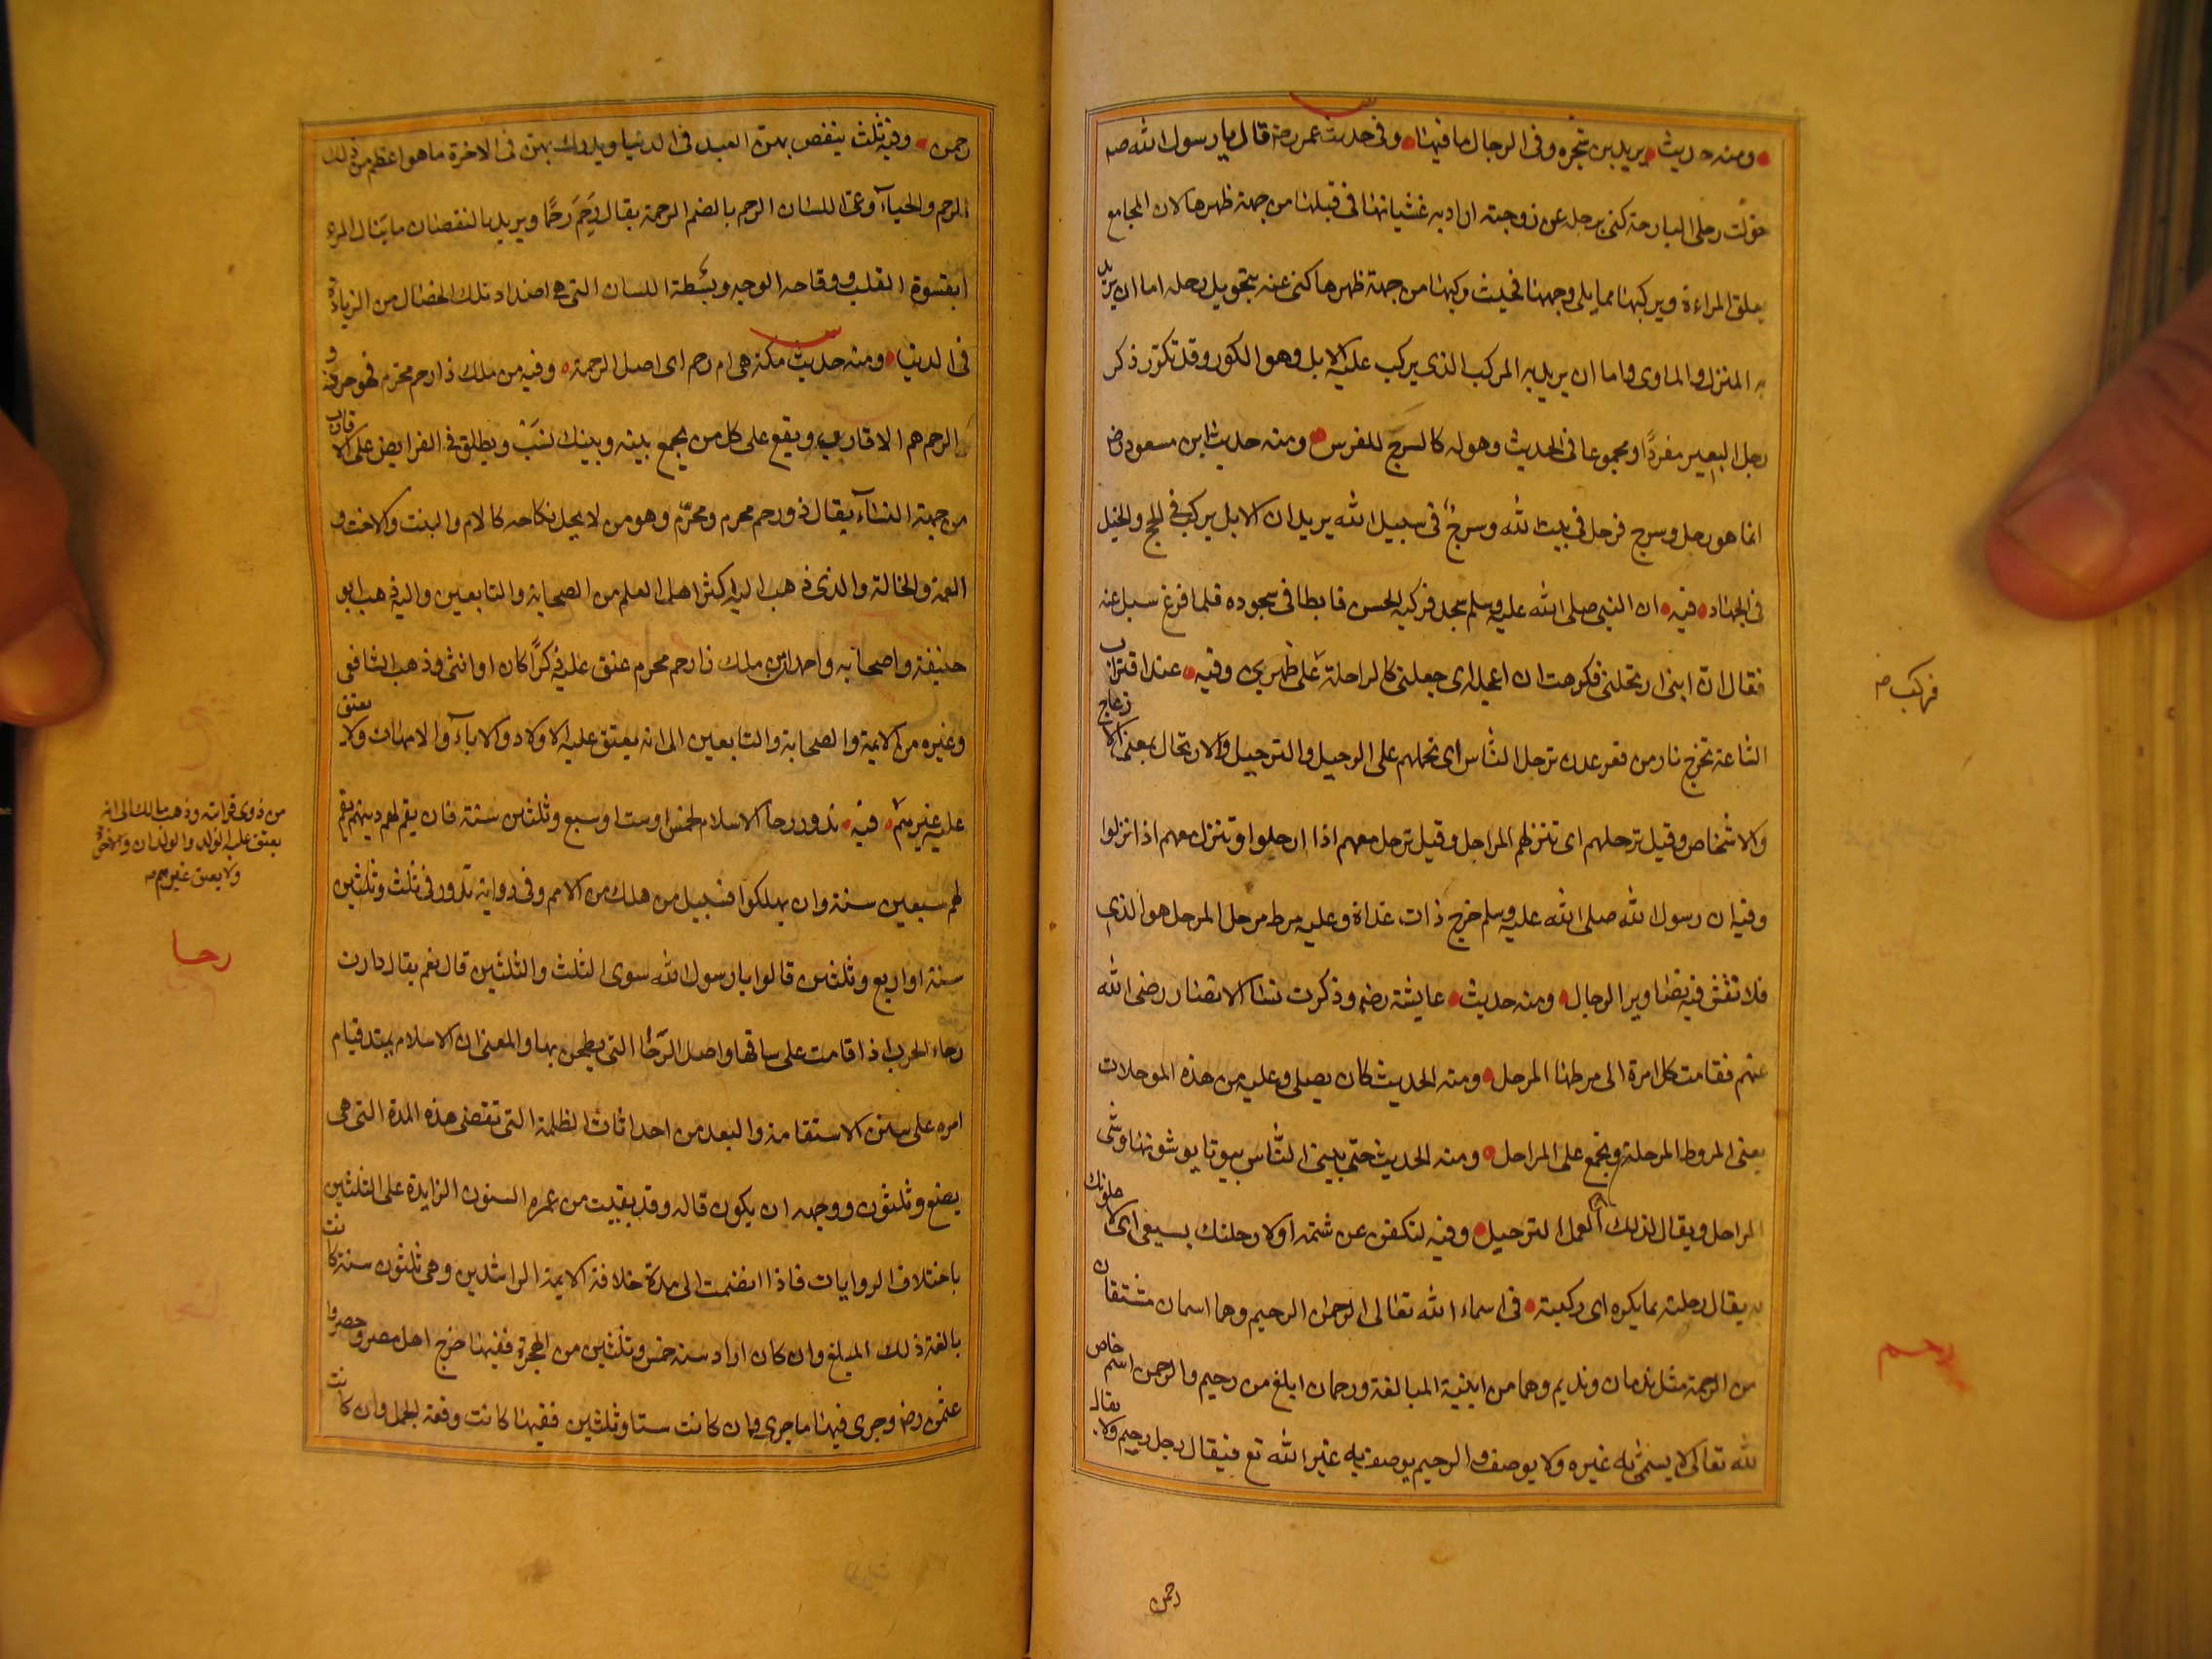 ومنه حديث يزيد بن شجرة وفى الرحال ما فيها وفى حديث عمر رضه قال يا رسول الله صه
حولت رحلى البارحة كنى برحله عن زوجته اراد به غشيانها فى قبلها من جهة ظهرها لان المجامع
يعلو المراءة ويركبها مما يلى وجهها فحيث ركبها من جهة ظهرها كنى عنه بتحويل رحله اما ان يريد
به المنزل والماوى واما ان يريد به المركب الذى يركب عليه الابل وهو الكور وقد تكرر ذكر
رحل البعير مفردًا ومجموعا فى الحديث وهو له كالسرج للفرس ومنه حديث ابن مسعود رض
انما هو رحل وسرج فرحل فى بيت الله وسرج فى سبيل الله يريد ان الابل يركب فى الحج والخيل
فى الجهاد فيه ان النبى صلى الله عليه وسلم سجد فركبه الحسن فابطا فى سجوده فلما فرغ سيل عنه
فقال ان ابنى ارتحلنى فكرهت ان اعجله اى جعلنى كالراحلة على ظهرى وفيه عند اقتراب
الساعة تخرج نار من قعر عدن ترحل الناس اى تحملهم على الرحيل والترحيل والارتحال بمعنى الازعاج
والاشخاص وقيل ترحلهم اى تنزلهم المراحل وقيل ترحل معهم اذا ارحلوا وتنزل معهم اذا نزلوا
وفيه ان رسول الله صلى الله عليه وسلم خرج ذات غداة وعليه مرط مرحل المرحل هو الذى
قد نقش فيه تصاوير الرحال ومنه حديث عايشة رضه وذكرت نسا الانصار رضى الله
عنهم فقامت كل امرة الى مرطها المرحل ومنه الحديث كان يصلى وعليه من هذه المرحلات
يعنى المروط المرحلة وتجمع على المراحل ومنه الحديث حتى يبنى الناس بيوتا يوشونها وشى
المراحل ويقال لذلك العمل الترحيل وفيه لتكفن عن شتمه او لا رحلنك بسيفى اى لاعلونك
به يقال رحلته بما يكره اى ركبته فى اسماء الله تعالى الرحمن الرحيم وهما اسمان مشتقان
من الرحمة مثل ندمان ونديم وهما من ابنية المبالغة ورحمان ابلغ من رحيم والرحمن اسم خاص
لله تعالى لا يسمى به غيره ولا يوصف والرحيم يوصف به غير الله تع فيقال رجل رحيم ولا يقال
رحمن
فركب صه
رحم
رحمن وفيه ثلث ينقص بهن العبد فى الدنيا ويدرك بهن فى الاخرة ما هو اعظم من ذلك
الرحم والحياء وعى اللسان الرحم بالضم الرحمة يقال رَحِمَ رحمًا ويريد بالنقصان ما ينال المرء
بقسوة القلب ووقاحه الوجه وبسطة اللسان التى هى اضداد تلك الخصال من الزيادة
فى الدنيا ومنه حديث مكة هى ام رحم اى اصل الرحمة وفيه من ملك ذا رحم محرم فهو حر وذو
الرحم هم الاقارب ويقع على كل من يجمع بينه وبينك نسب ويطلق فى الفرايض على الاقارب
من جهة النساء يقال ذو رحم محرم ومحرّم وهو من لا يحل نكاحه كالام والبنت والاخت و
العمة والخالة والذى ذهب اليه اكثر اهل العلم من الصحابة والتابعين واليه ذهب ابو
حنيفة واصحابه واحمد ان من ملك ذا رحم محرم عتق عليه ذكرًا كان او انثى وذهب الشافعى
وغيره من الايمة والصحابة والتابعين الى انه يعتق عليه الاولاد والاباء والامهات ولا يعتق
عليه غيرهم فيه تدور رحا الاسلام لخمس او ست او سبع وثلثين سنة فان يقم لهم دينهم يقم
لهم سبعين سنة وان يهلكوا فسبيل من هلك من الامم وفى رواية تدور فى ثلث وثلثين
سنة او اربع وثلثين قالوا يا رسول الله سوى الثلث والثلثين قال نعم يقال دارت
رحاء الحرب اذا قامت على ساقها واصل الرحا التى يطحن بها والمعنى ان الاسلام يمتد قيام
امره على سنن الاستقامة والبعد من احداثات الظلمة التى تقضى هذه المدة التى هى
بضع وثلثون ووجهه ان يكون قاله وقد بقيت من عمره السنون الزايدة على الثلثين
باختلاف الروايات فاذا انضمت الى مدة خلافة الايمة الراشدين وهى ثلثون سنة كانت
بالغة ذلك المبلغ وان كان اراد سنه خمس وثلثين من الهجرة ففيها خرج اهل مصر وحصروا
عثمن رض وجرى فيها ما جرى وان كانت ستا وثلثين ففيها كانت وقعة الجمل وان كانت
من ذوى قرابته وذهب مالك الى انه
يعتق عليه الولد والوالدان والاخوة
ولا يعتق غيرهم صه
رحا